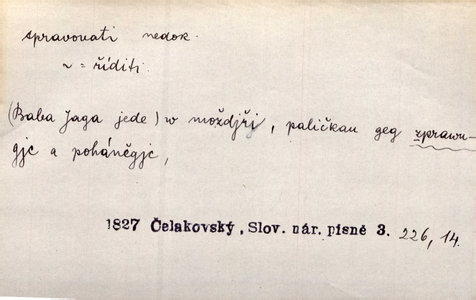 spravovati nedok.
~ = říditi.
(Baba Jaga jede) w moždjři, paličkau geg zprawu-
gjc a poháněgjc,
1827 Čelakovský, Slov. nár. písně 3. 226, 14.